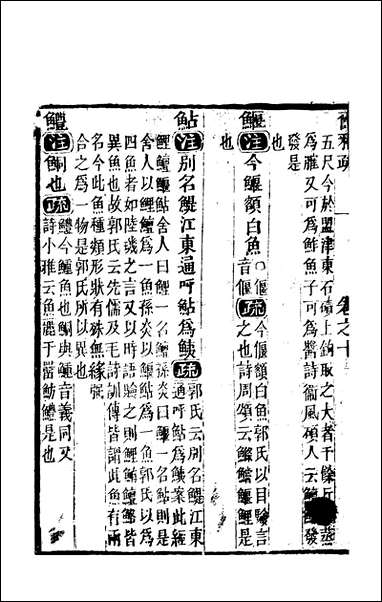 爾雅疏 卷之十
五尺今於盟津東石磧上鈎取之大者千餘斤蒸
為脽又可為鮓魚子可為醬詩衞風碩人云鱣發
發是
也
鰋注今鰋額白魚○音偃疏今偃額白魚郭氏以目驗言
之也詩周頌云鰷鱨鰋鯉是
也
鮎注別名鯷江東通呼鮎為鮧疏郭氏云別名鯷江東
通呼鮎為鮧案此經
鯉鱣鰋鮎舍人曰鯉一名鱣孫炎曰鰋一名鮎則是
舍人以鯉鱣為一魚孫炎以鰋鮎為一魚郭氏以為
四魚者如陸璣之言又以時語驗之則鯉鮪鱣鰋皆
異魚也故郭氏云先儒及毛詩訓傳皆謂此魚有兩
名今此魚種類形狀有殊無緣強
合之為一物是郭氏所以異也
鱧注鮦也疏鱧今鱺魚也鮦與鱺音義同又
詩小雅云魚麗于罶魴鱧是也